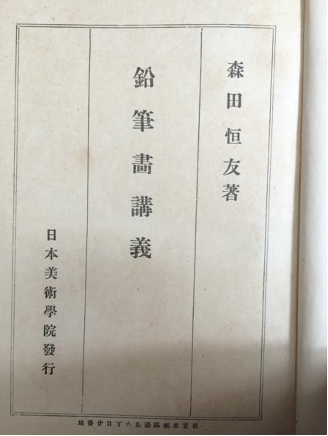 森田恒友著
鉛筆畫講義
日本美術學院發行